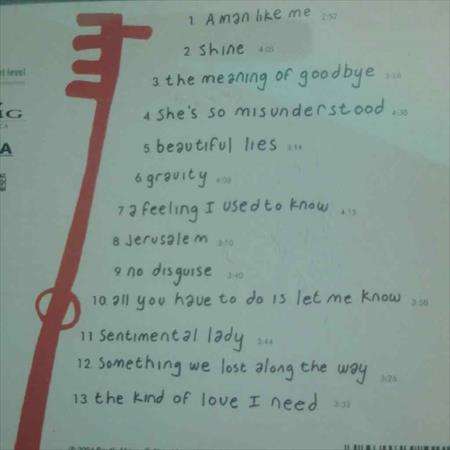 1 A man like me 2:52
2 Shine 4:05
3 the meaning of goodbye
4 she's so misunderstood
5 beautiful lies
6 gravity
7 a feeling I used to know 4:13
8 Jerusalem
9 no disguise 3:40
10 all you have to do is let me know
11 Sentimental lady 3:44
12 Something we lost along the way 3:25
13 the kind of love I need
level
IG
CA
A